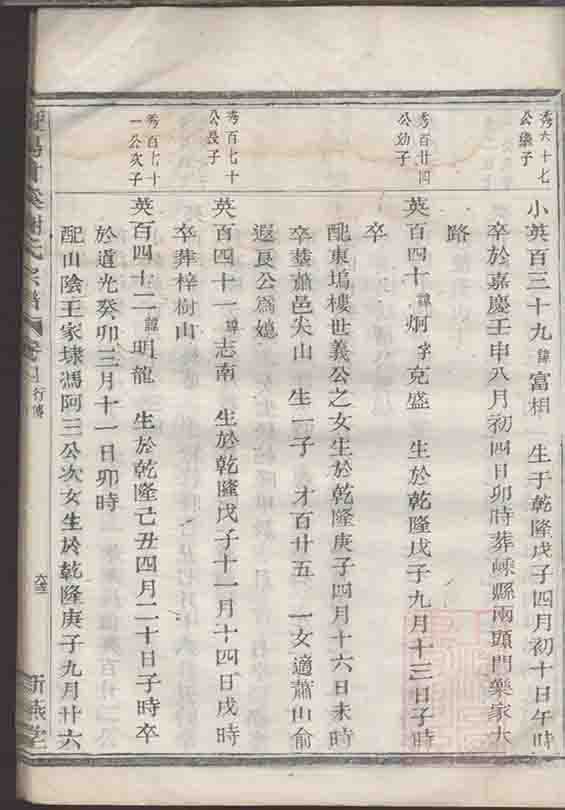 秀六十七
公樂子
小英百三十九諱富相 生于乾隆戊子四月初十日午時
卒於嘉慶壬申八月初四日卯時葬嵊縣兩頭門藥家大
路
秀百廿四
公幼子
英百四十諱炯字克盛 生於乾隆戊子九月十三日子時
卒
配東塢樓世義公之女生於乾隆庚子四月十六日未時
卒葬蕭邑尖山 生一子 才百廿五 一女適蕭山俞
遐良公爲媳
秀百七十
公長子
英百四十一諱志南 生於乾隆戊子十一月十四日戌時
卒葬梓樹山
秀百七十
一公次子
英百四十二諱明龍 生於乾隆己丑四月二十日子時卒
於道光癸卯三月十一日卯時
配山陰王家埭馮阿三公次女生於乾隆庚子九月廿六
謝氏宗譜 行傳